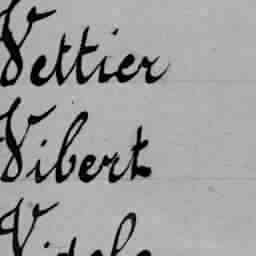 Vettier
Vibert